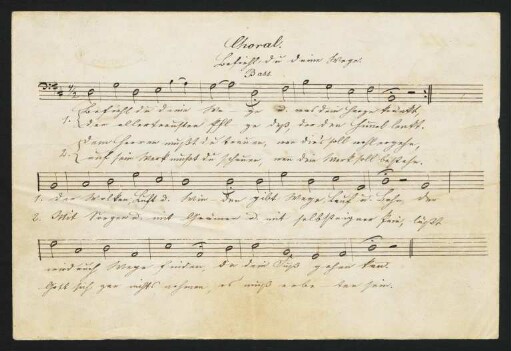 Choral.
Befiehl du deine Wege.
Bass.
1. Befiehl du deine Wege u. was dein Herze kränkt,
der allertreusten Pfl ge deß, der den Himmel lenkt.
2. Dem Herren mußt du trauen, wenn dir's soll wohl ergehn,
auf sein Werk mußt du schauen, wenn dein Werk soll bestehn.
1. der Wolken Luft u. Winden gibt Wege, Lauf u. Bahn, der
2. Mit Sorgen u. mit Grämen u. mit selbsteigner Pein, läßt
wird auch Wege finden, da dein Fuß gehen kann.
Gott sich gar nichts nehmen, es muß erbeten sein.